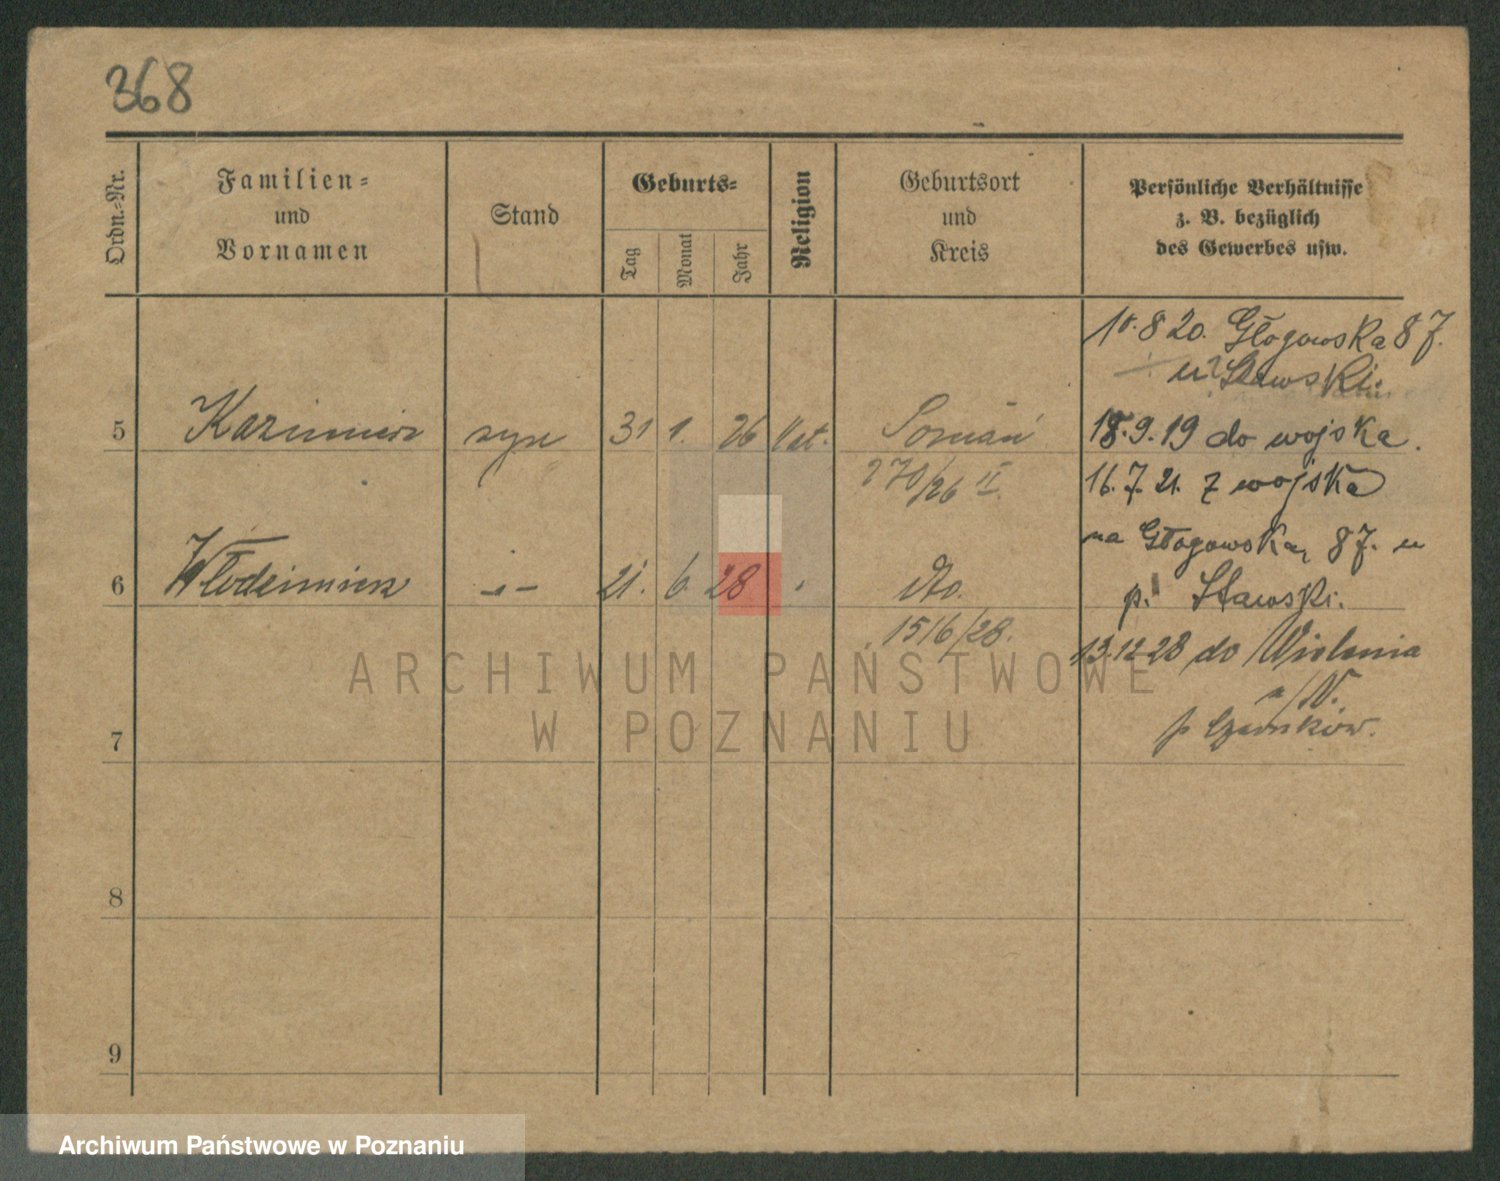 368
Ordn.-Nr.
Familien-
und
Vornamen
Stand
Geburts-
Tag
Monat
Jahr
Religion
Geburtsort
und
Kreis
Persönliche Verhältnisse
z. B. bezüglich
des Gewerbes usw.
8 20. Głogowska 87.
u Stawski
5 Kazimierz syn 31 1. 26 kat. Poznań
18.9.19 do wojska.
270/26 II.
16.7.21. z wojska
na Głogowską 87. u
6 Włodzimierz -"- 21. 6. 28 dto.
p. Stawski.
1516/28.
13.12 28 do Wielenia
n/N.
7
p Czarnków.
8
9
ARCHIWUM PAŃSTWOWE
W POZNANIU
Archiwum Państwowe w Poznaniu